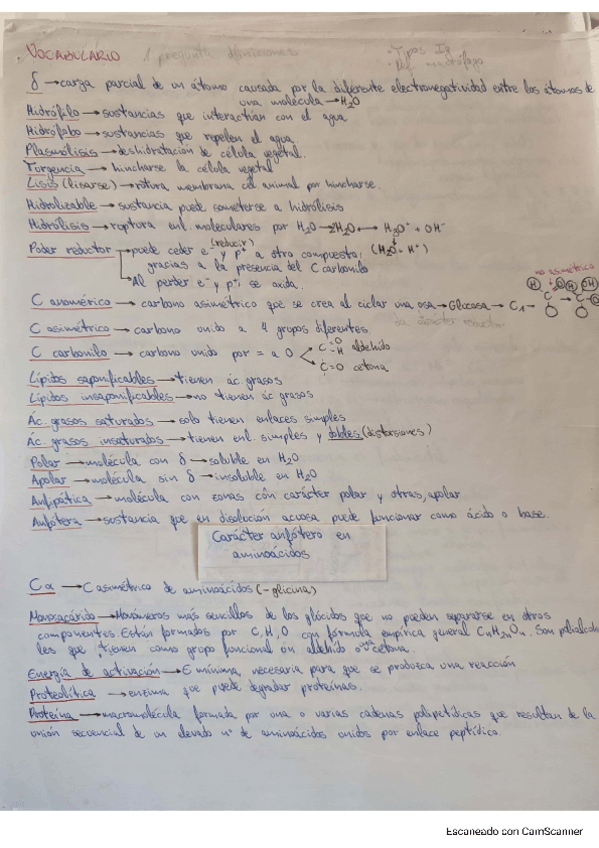 VOCABULARIO 1 pregunta definiciones
· Tipos Ig
macrófago
δ → carga parcial de un átomo causada por la diferente electronegatividad entre los átomos de
una molécula → H2O
Hidrófilo → sustancias que interactúan con el agua
Hidrófobo → sustancias que repelen el agua
Plasmólisis → deshidratación de célula vegetal.
Turgencia → hincharse la célula vegetal
Lisis (lisarse) → rotura membrana cél animal por hincharse.
Hidrolizable → sustancia puede someterse a hidrólisis
Hidrólisis → ruptura enl. moleculares por H2O → 2H2O ↔ H3O+ + OH-
Poder reductor → puede ceder (reducir) e- y p+ a otro compuesto; (H2O - H+)
gracias a la presencia del C carbonilo
→ Al perder e- y p+, se oxida.
no asimétrico
C anomérico → carbono asimétrico que se crea al ciclar una osa → Glucosa → C1 →
C asimétrico → carbono unido a 4 grupos diferentes
C carbonilo → carbono unido por = a O
C =O -H aldehído
C=O cetona
Lípidos saponificables → tienen ác grasos
Lípidos insaponificables → no tienen ác grasos
Ác. grasos saturados → solo tienen enlaces simples
Ác. grasos insaturados → tienen enl. simples y dobles (distorsiones)
Polar → molécula con δ → soluble en H2O
Apolar → molécula sin δ → insoluble en H2O
Anfipática → molécula con zonas con carácter polar y otras, apolar
Anfótera → sustancia que en disolución acuosa puede funcionar como ácido o base.
Carácter anfótero en
aminoácidos
Cα → C asimétrico de aminoácidos (- glicina)
Monosacárido → Monómeros más sencillos de los glúcidos que no pueden separarse en otros
componentes. Están formados por C, H, O con fórmula empírica general CnH2nOn. Son polialcoho
les que tienen como grupo funcional un aldehído o cetona.
Energía de activación → E mínima necesaria para que se produzca una reacción
Proteolítica → enzima que puede degradar proteínas.
Proteína → macromolécula formada por una o varias cadenas polipetídicas que resultan de la
unión secuencial de un elevado nº de aminoácidos unidos por enlace peptídico.
Escaneado con CamScanner